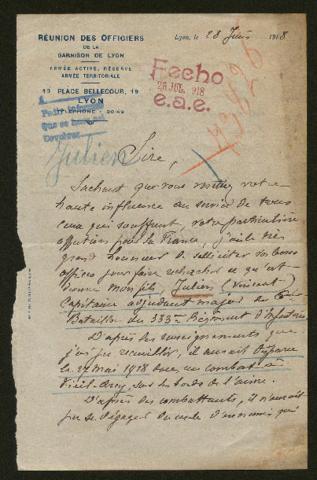 RÉUNION DES OFFICIERS
DE LA
GARNISON DE LYON
ARMÉE ACTIVE, RÉSERVE
ARMÉE TERRITORIALE
19 PLACE BELLECOUR, 19
LYON
TÉLÉPHONE
Lyon, le 28 Juin 1918
Fecho
26 JUL 918
e.a.e.
Julien
Sire,
Sachant que vous mettez votre
haute influence au service de tous
ceux qui souffrent, votre particulière
affection pour la France, j'ai le très
grand honneur de solliciter vos bons
offices pour faire rechercher ce qu'est
devenu mon fils, Julien (Vincent)
Capitaine adjudant major du
Bataillon du 333me Régiment d'Infanterie
D'après des renseignements que
j'ai pu recueillir, il aurait disparu
le 27 mai 1918 dans un combat à
Vieil-Arcy, sur les bords de l'Aisne.
D'après des combattants, il n'aurait
pu se dégager du cercle d'ennemis qui